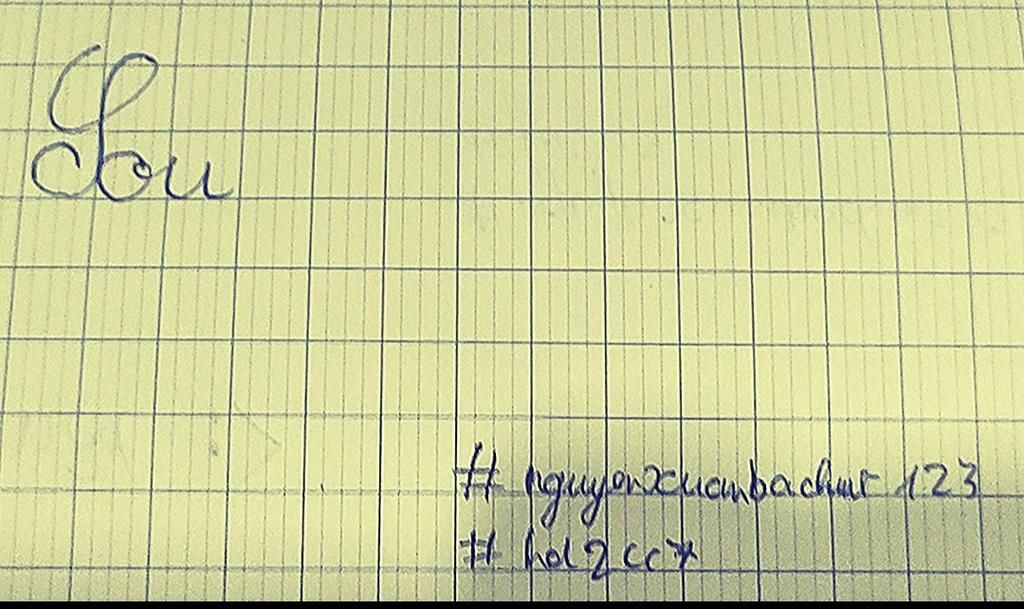 Sou
# nguyenxuanbachmr 123
# hd2cc7